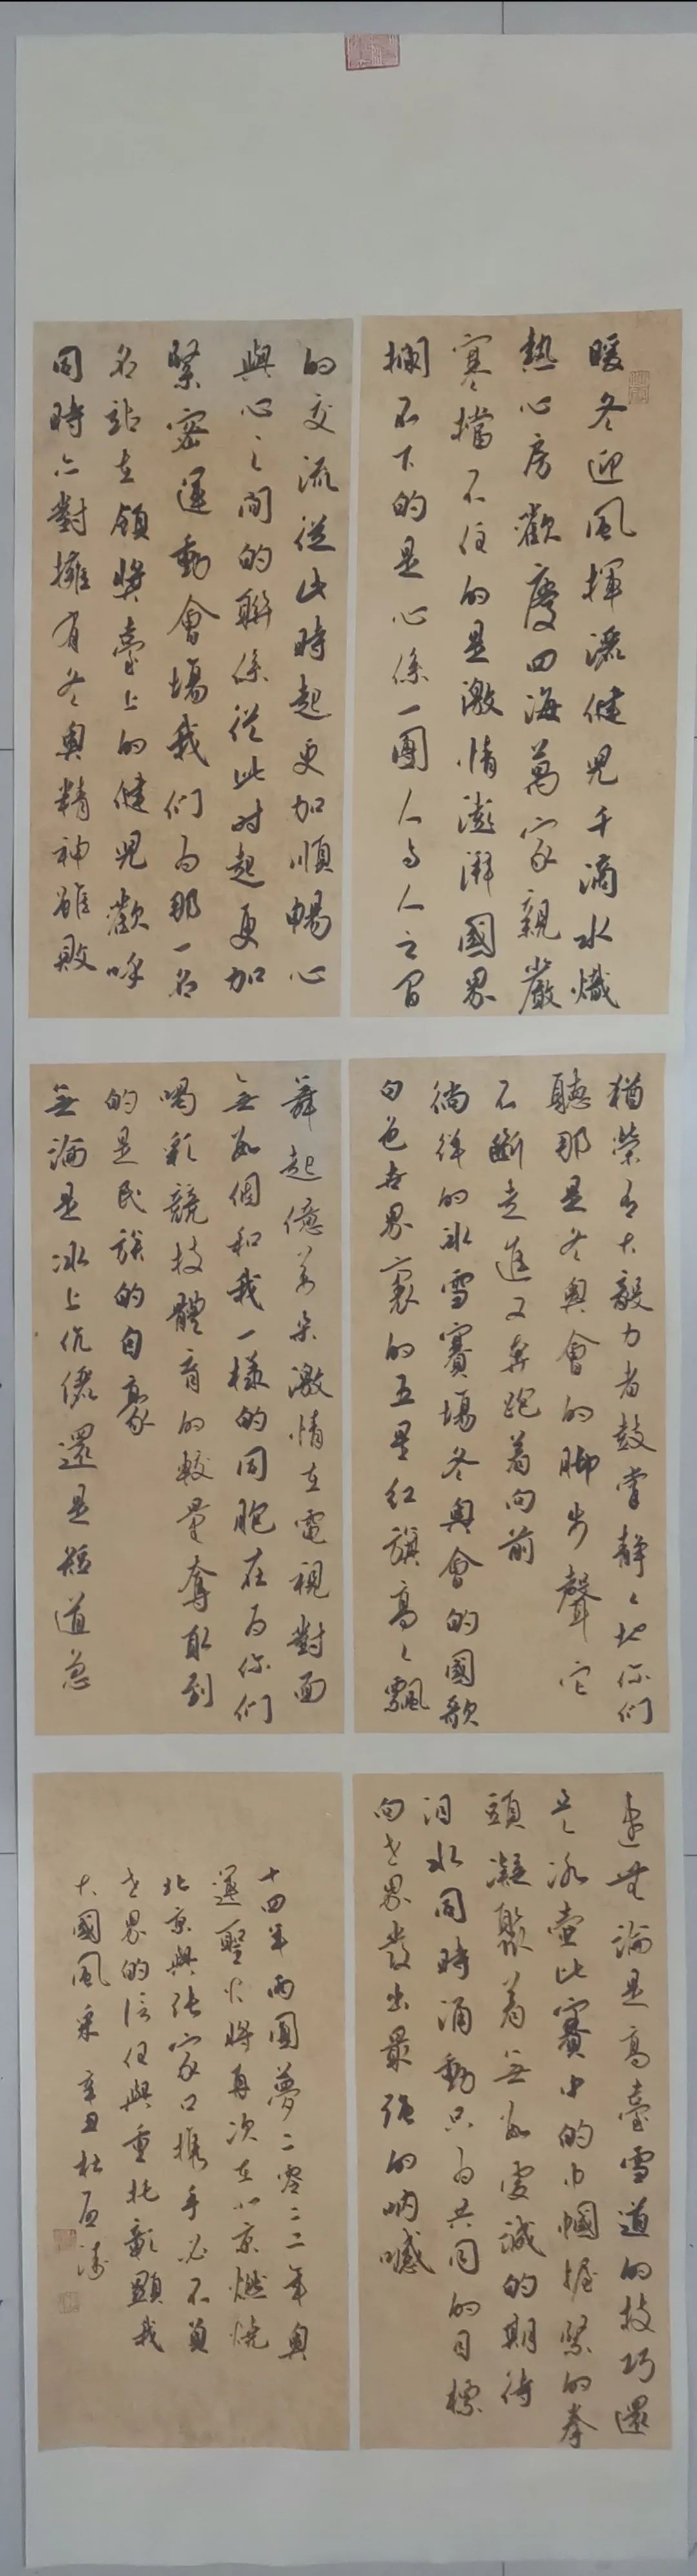 暖冬迎風揮灑健兒千滴水熾
熱心房歡慶四海萬家親嚴
寒擋不住的是激情澎湃國界
攔不下的是心係一團人与人之間
的交流從此時起更加順暢心
與心之間的聯係從此时起更加
緊密運動會場我们为那一名
名站在領獎臺上的健兒歡呼
同時亦對擁有冬奧精神雖敗
猶榮有大毅力者鼓掌靜靜地你们
聽那是冬奧會的脚步聲它
不斷走進又奔跑着向前
徜徉的冰雪賽場冬奧會的國歌
白色世界裏的五星红旗高高飄
舞起億萬朵激情在電視對面
無數個和我一樣的同胞在为你们
喝彩競技體育的較量奪取到
的是民族的自豪
無論是冰上伉儷還是短道急
速無論是高臺雪道的技巧還
是冰壺比賽中的巾幗握緊的拳
頭凝聚着無數虔誠的期待
泪水同時涌動只为共同的目標
向世界發出最强的呐喊
十四年兩圓夢二零二二年奧
運聖火將再次在北京燃燒
北京與张家口携手必不負
世界的信任與重托彰顯我
大國風采 辛丑杜